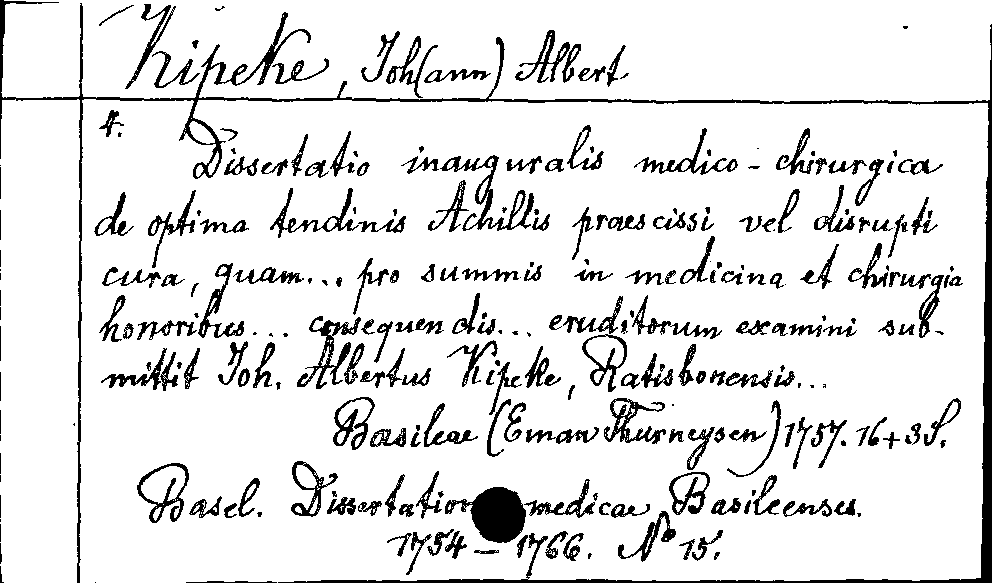 Kipeke, Joh(ann) Albert
4.
Dissertatio inauguralis medico-chirurgica
de optima tendinis Achillis praescissi vel disrupti
cura, quam... pro summis in medicina et chirurgia
honoribus... consequendis... eruditorum examini sub-
mittit Joh. Albertus Kipeke, Ratisbonensis...
Basileae (Eman Thurneysen) 1757. 16+3S.
Basel. Dissertation medicae Basileenses.
1754 – 1766. No 15.